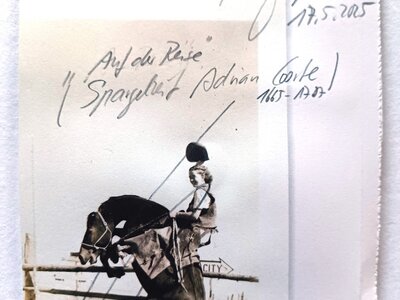 17.5.2025
"Auf der Reise"
"Spargelzeit Adrian Coorte)
1665-1707
CITY